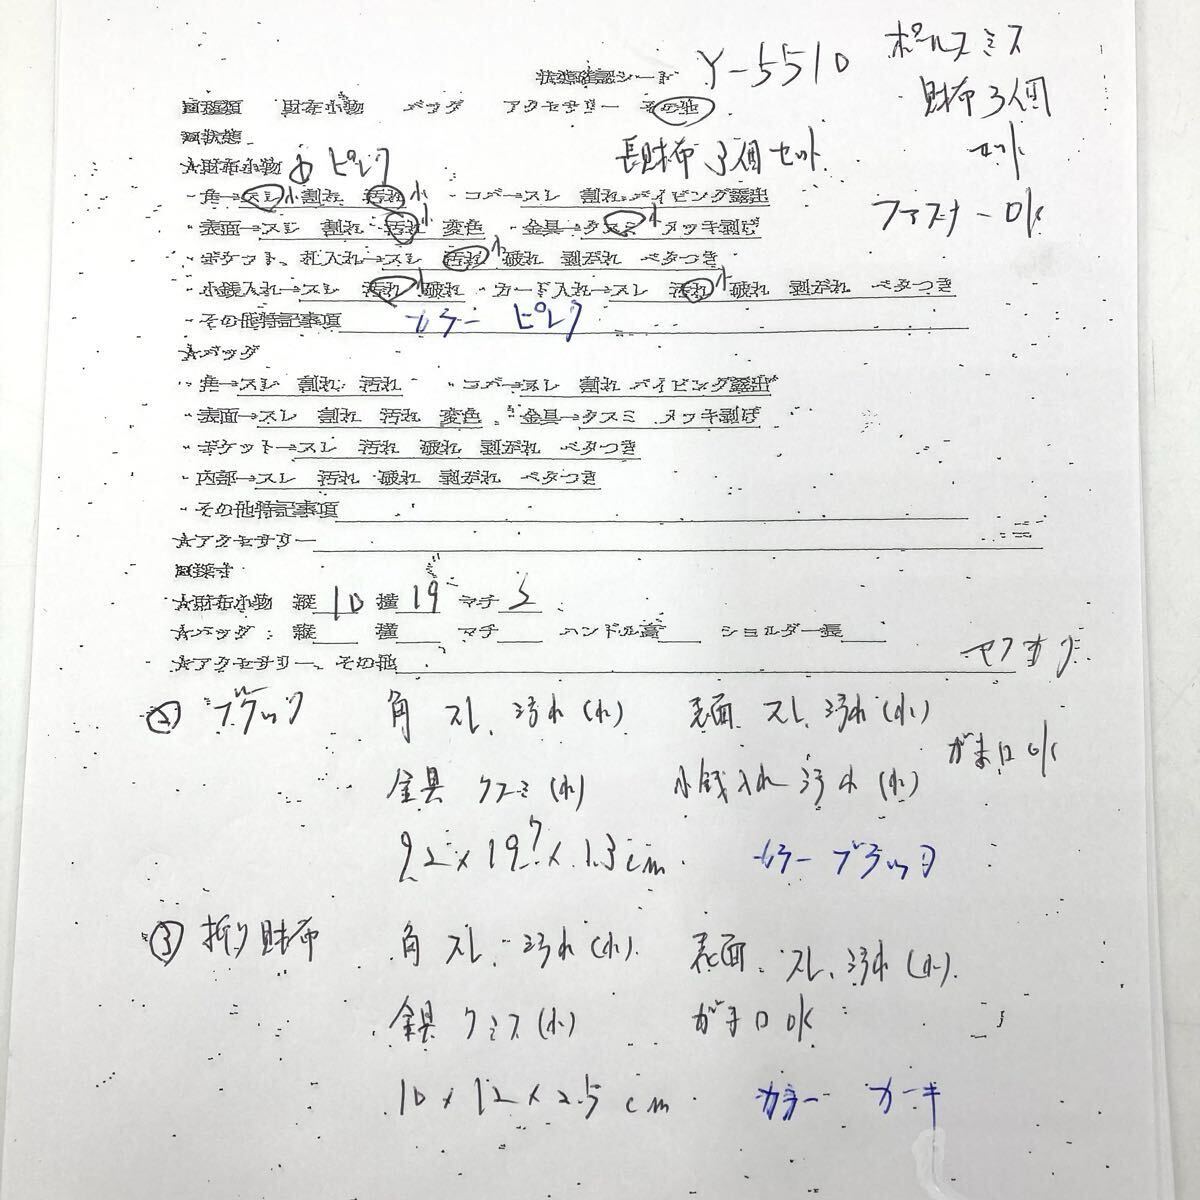 状態確認シート Y-5510 ポールスミス
財布3個
セット
■種類 財布小物 バッグ アクセサリー その他
■状態
長財布3個セット
★財布小物 ① ピンク
・角→スレ小 割れ 汚れ小 ・コバ→スレ 割れ パイピング露出
ファスナーOK
・表面→スレ 割れ 汚れ小 変色 ・金具→クスミ小 メッキ剥げ
・ポケット、札入れ→スレ 汚れ小 破れ 剥がれ ベタつき
・小銭入れ→スレ 汚れ小 破れ ・カード入れ→スレ 汚れ小 破れ 剥がれ ベタつき
・その他特記事項 カラー ピンク
★バッグ
・角→スレ 割れ 汚れ ・コバ→スレ 割れ パイピング露出
・表面→スレ 割れ 汚れ 変色 ・金具→クスミ メッキ剥げ
・ポケット→スレ 汚れ 破れ 剥がれ ベタつき
・内部→スレ 汚れ 破れ 剥がれ ベタつき
・その他特記事項
★アクセサリー
■採寸
★財布小物 縦 10 横 19 マチ 3
★バッグ:縦 横 マチ ハンドル高 ショルダー長
★アクセサリー、その他
② ブラック 角 スレ、汚れ(小) 表面 スレ、汚れ(小)
がま口OK
金具 クスミ(小) 小銭入れ 汚れ(小)
カラー ブラック
③ 折り財布 角 スレ、汚れ(小) 表面、スレ、汚れ(小)
金具 クミス(小) がま口OK
10×12×2.5cm カラー カーキ